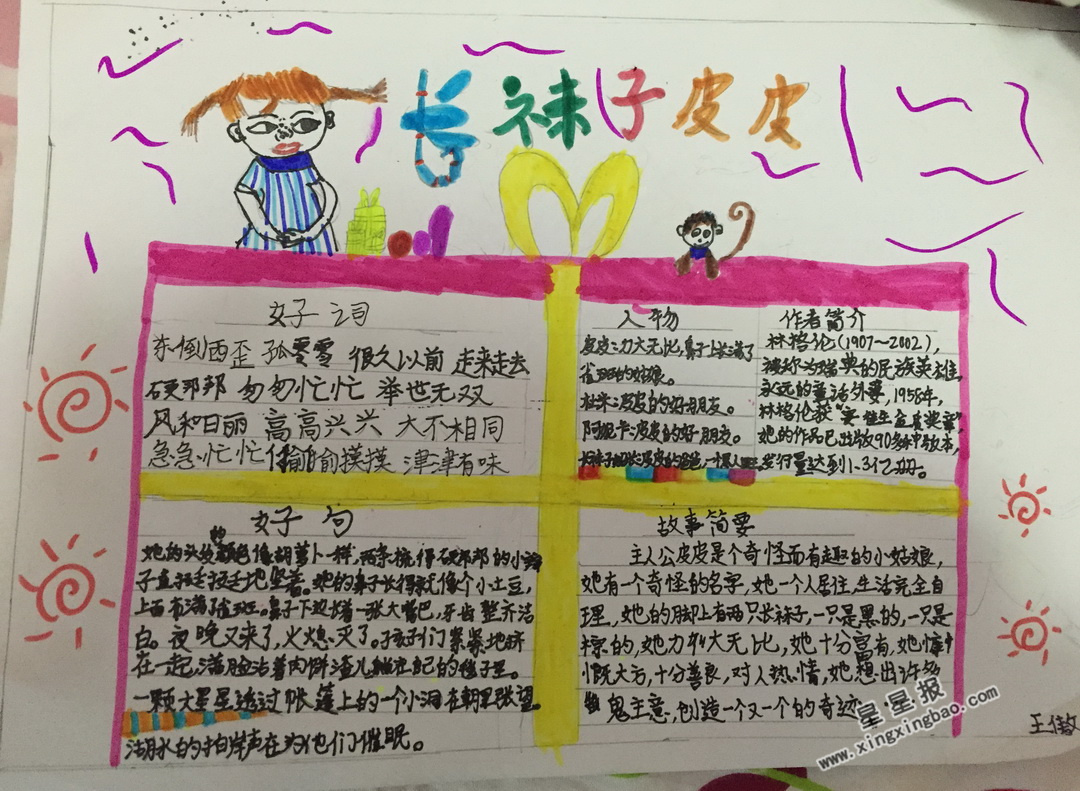 长袜子皮皮
好词
东倒西歪 孤零零 很久以前 走来走去
硬邦邦 匆匆忙忙 举世无双
风和日丽 高高兴兴 大不相同
急急忙忙 偷偷摸摸 津津有味
人物
皮皮:力大无比,鼻子上长满了
雀斑的姑娘。
杜米:皮皮的好朋友。
阿妮卡:皮皮的好朋友。
作者简介
林格伦(1907~2002),
被称为瑞典的民族英雄,
永远的童话外婆,1958年,
林格伦获"安徒生金质奖章",
她的作品已出版90多种版本,
发行量达到1.3亿册。
好句
她的头发的颜色像胡萝卜一样,两条梳得硬邦邦的小辫
子直挺挺地竖着。她的鼻子长得就像个小土豆,
上面布满了雀斑。鼻子下边长着一张大嘴巴,牙齿整齐洁
白。夜晚又来了,火熄灭了。孩子们紧紧地挤
在一起,满脸沾着肉饼渣儿躺在自己的毯子里。
一颗大星星透过帐篷上的一个小洞在朝里张望。
湖水的拍岸声在为他们催眠。
故事简要
主人公皮皮是个奇怪而有趣的小姑娘,
她有一个奇怪的名字,她一个人居住,生活完全自
理,她的脚上有两只长袜子,一只是黑的,一只是
棕的,她力气大无比,她十分富有,她慷
慨大方,十分善良,对人热情,她想出许多
鬼主意,创造一个又一个的奇迹
星星报
www.xingxingbao.com